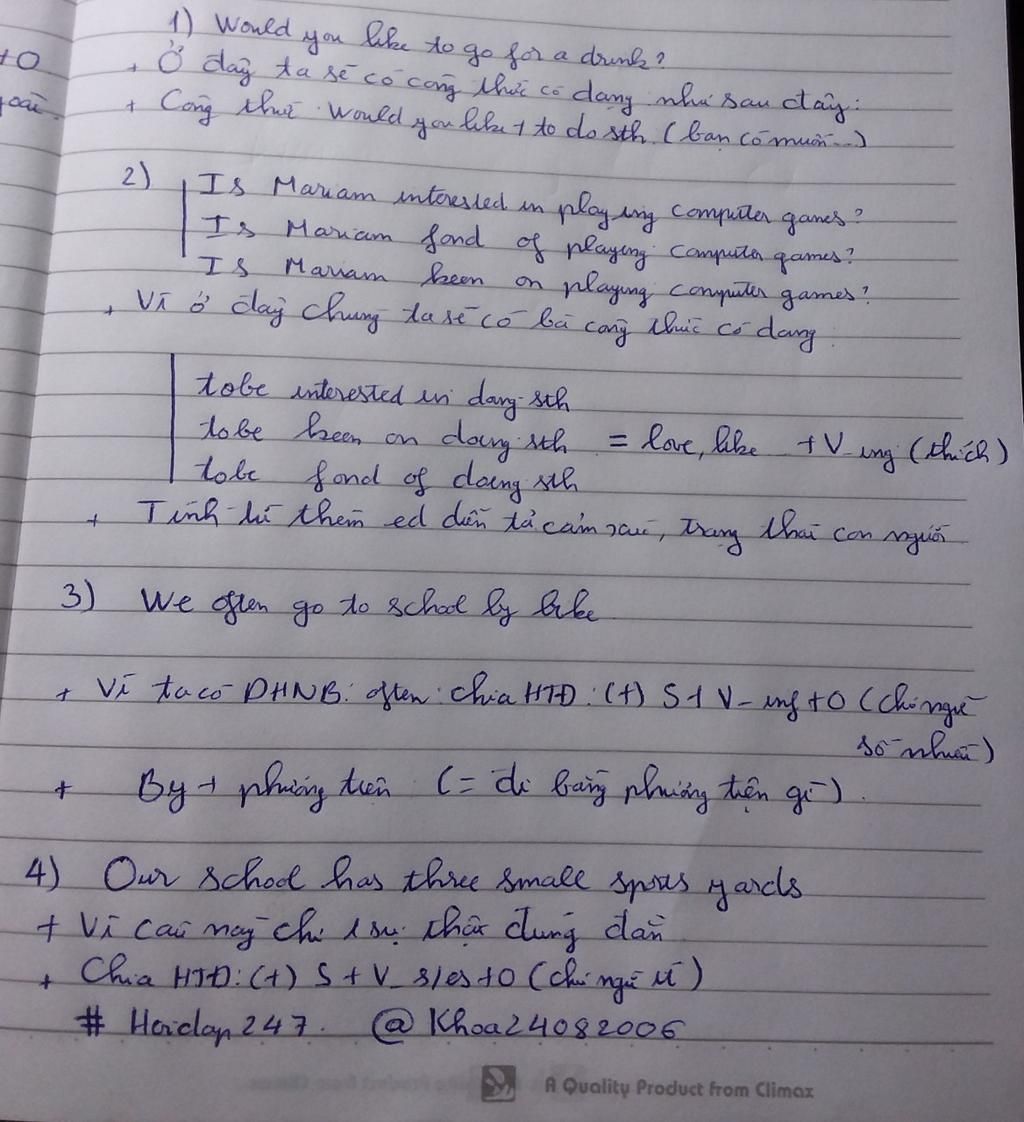 1) Would you like to go for a drink?
+ Ở đây ta sẽ có công thức có dạng như sau đây:
+ Công thức: Would you like + to do sth (bạn có muốn...)
+O
2) Is Mariam interested in playing computer games?
Is Mariam fond of playing computer games?
Is Mariam keen on playing computer games?
+ Vì ở đây chúng ta sẽ có ba công thức có dạng
tobe interested in doing sth
tobe keen on doing sth = love, like + V_ing (thích)
tobe fond of doing sth
+ Tính từ thêm ed diễn tả cảm xúc, trạng thái con người
3) We often go to school by bike
+ Vì ta có DHNB: often: chia HTĐ: (+) S + V-inf + O (chủ ngữ
số nhiều)
+ By + phương tiện (= đi bằng phương tiện gì).
4) Our school has three small sports yards
+ Vì câu này chỉ 1 sự thật đúng đắn
+ Chia HTĐ: (+) S + V_s/es + O (chủ ngữ ít)
# Hoidap247. @Khoa24082006
A Quality Product from Climax